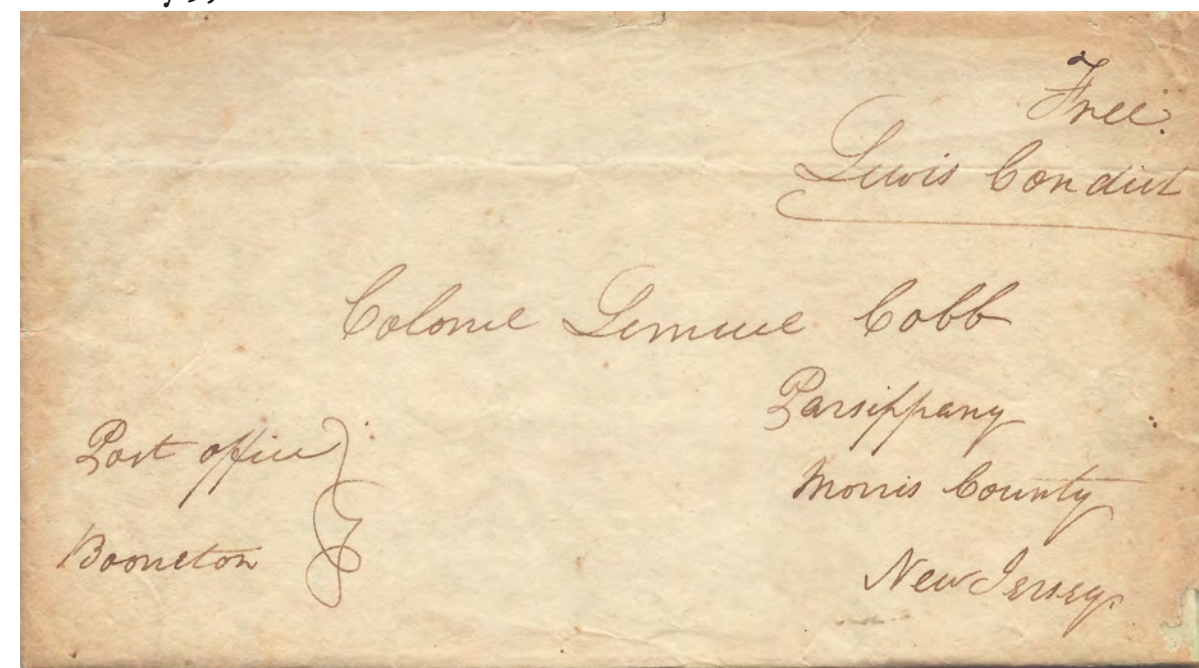 Free
Lewis Condict
Colonel Lemuel Cobb
Parsippany
Morris County
New Jersey.
Post office
Booneton